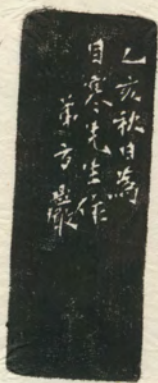 乙亥秋日為
目寒先生作
弟方巖